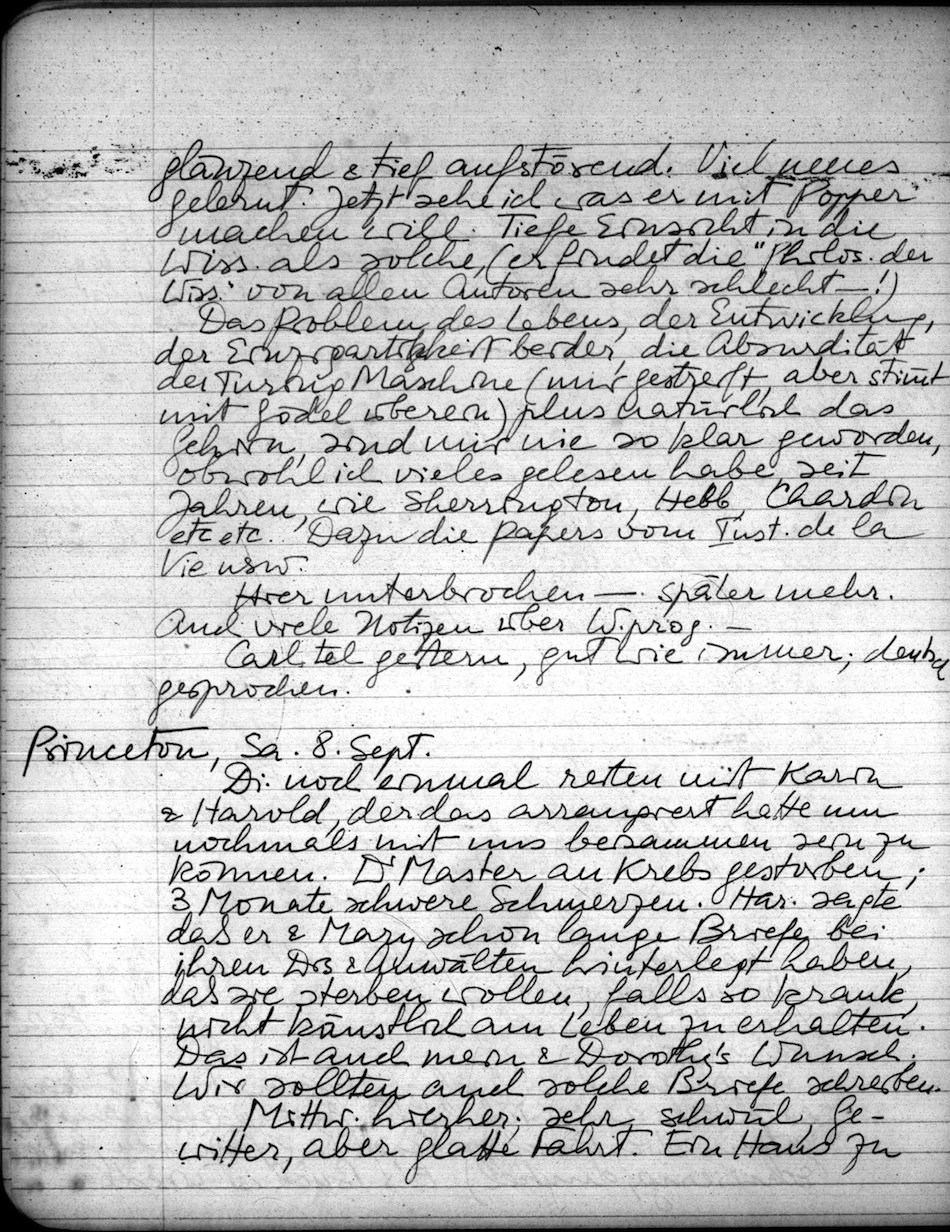 glänzend & tief aufstörend. Viel neues
gelernt. Jetzt seh ich was er mit Popper
machen will. Tiefe Einsicht in die
Wiss. als solche, (er findet die "Philos. der
Wiss." von allen Autoren sehr schlecht —!)
Das Problem des Lebens, der Entwicklung,
der Einzigartigkeit beider, die Absurdität
der Turing Maschine (nur gestreift, aber stimmt
mit Gödel überein) plus natürlich das
Gehirn, sind mir nie so klar geworden,
obwohl ich vieles gelesen habe, seit
Jahren, wie Sherrington, Hebb, Chardin
etc etc. Dazu die papers vom Inst. de la
Vie usw.
Hier unterbrochen — später mehr.
Auch viele Notizen über W.prog. —
Carl tel gestern, gut wie immer; deutsch
gesprochen.
Princeton, Sa. 8. Sept.
Di. noch einmal reiten mit Karin
& Harold, der das arrangiert hatte um
nochmals mit uns beisammen sein zu
können. Dr Master an Krebs gestorben;
3 Monate schwere Schmerzen. Har. sagte
das er & Mary schon lange Briefe bei
ihren Drs & Anwälten hinterlegt haben,
das sie sterben wollen, falls so krank,
nicht künstlich am Leben zu erhalten.
Das ist auch mein & Dorothy's Wunsch.
Wir sollten auch solche Briefe schreiben.
Mittw. hierher; sehr schwül, Ge-
witter, aber glatte Fahrt. Ein Haus zu